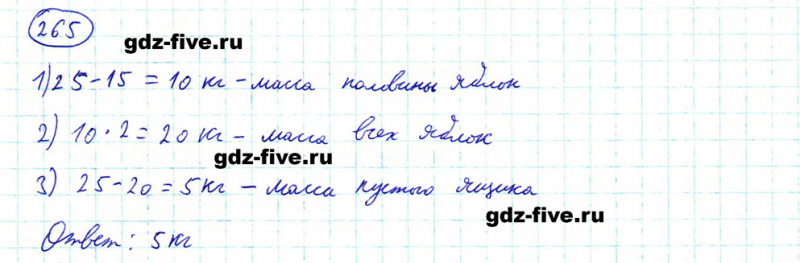 265
gdz-five.ru
1) 25 - 15 = 10 кг - масса половины яблок
2) 10 · 2 = 20 кг - масса всех яблок
gdz-five.ru
3) 25 - 20 = 5 кг - масса пустого ящика
gdz-five.ru
Ответ: 5 кг